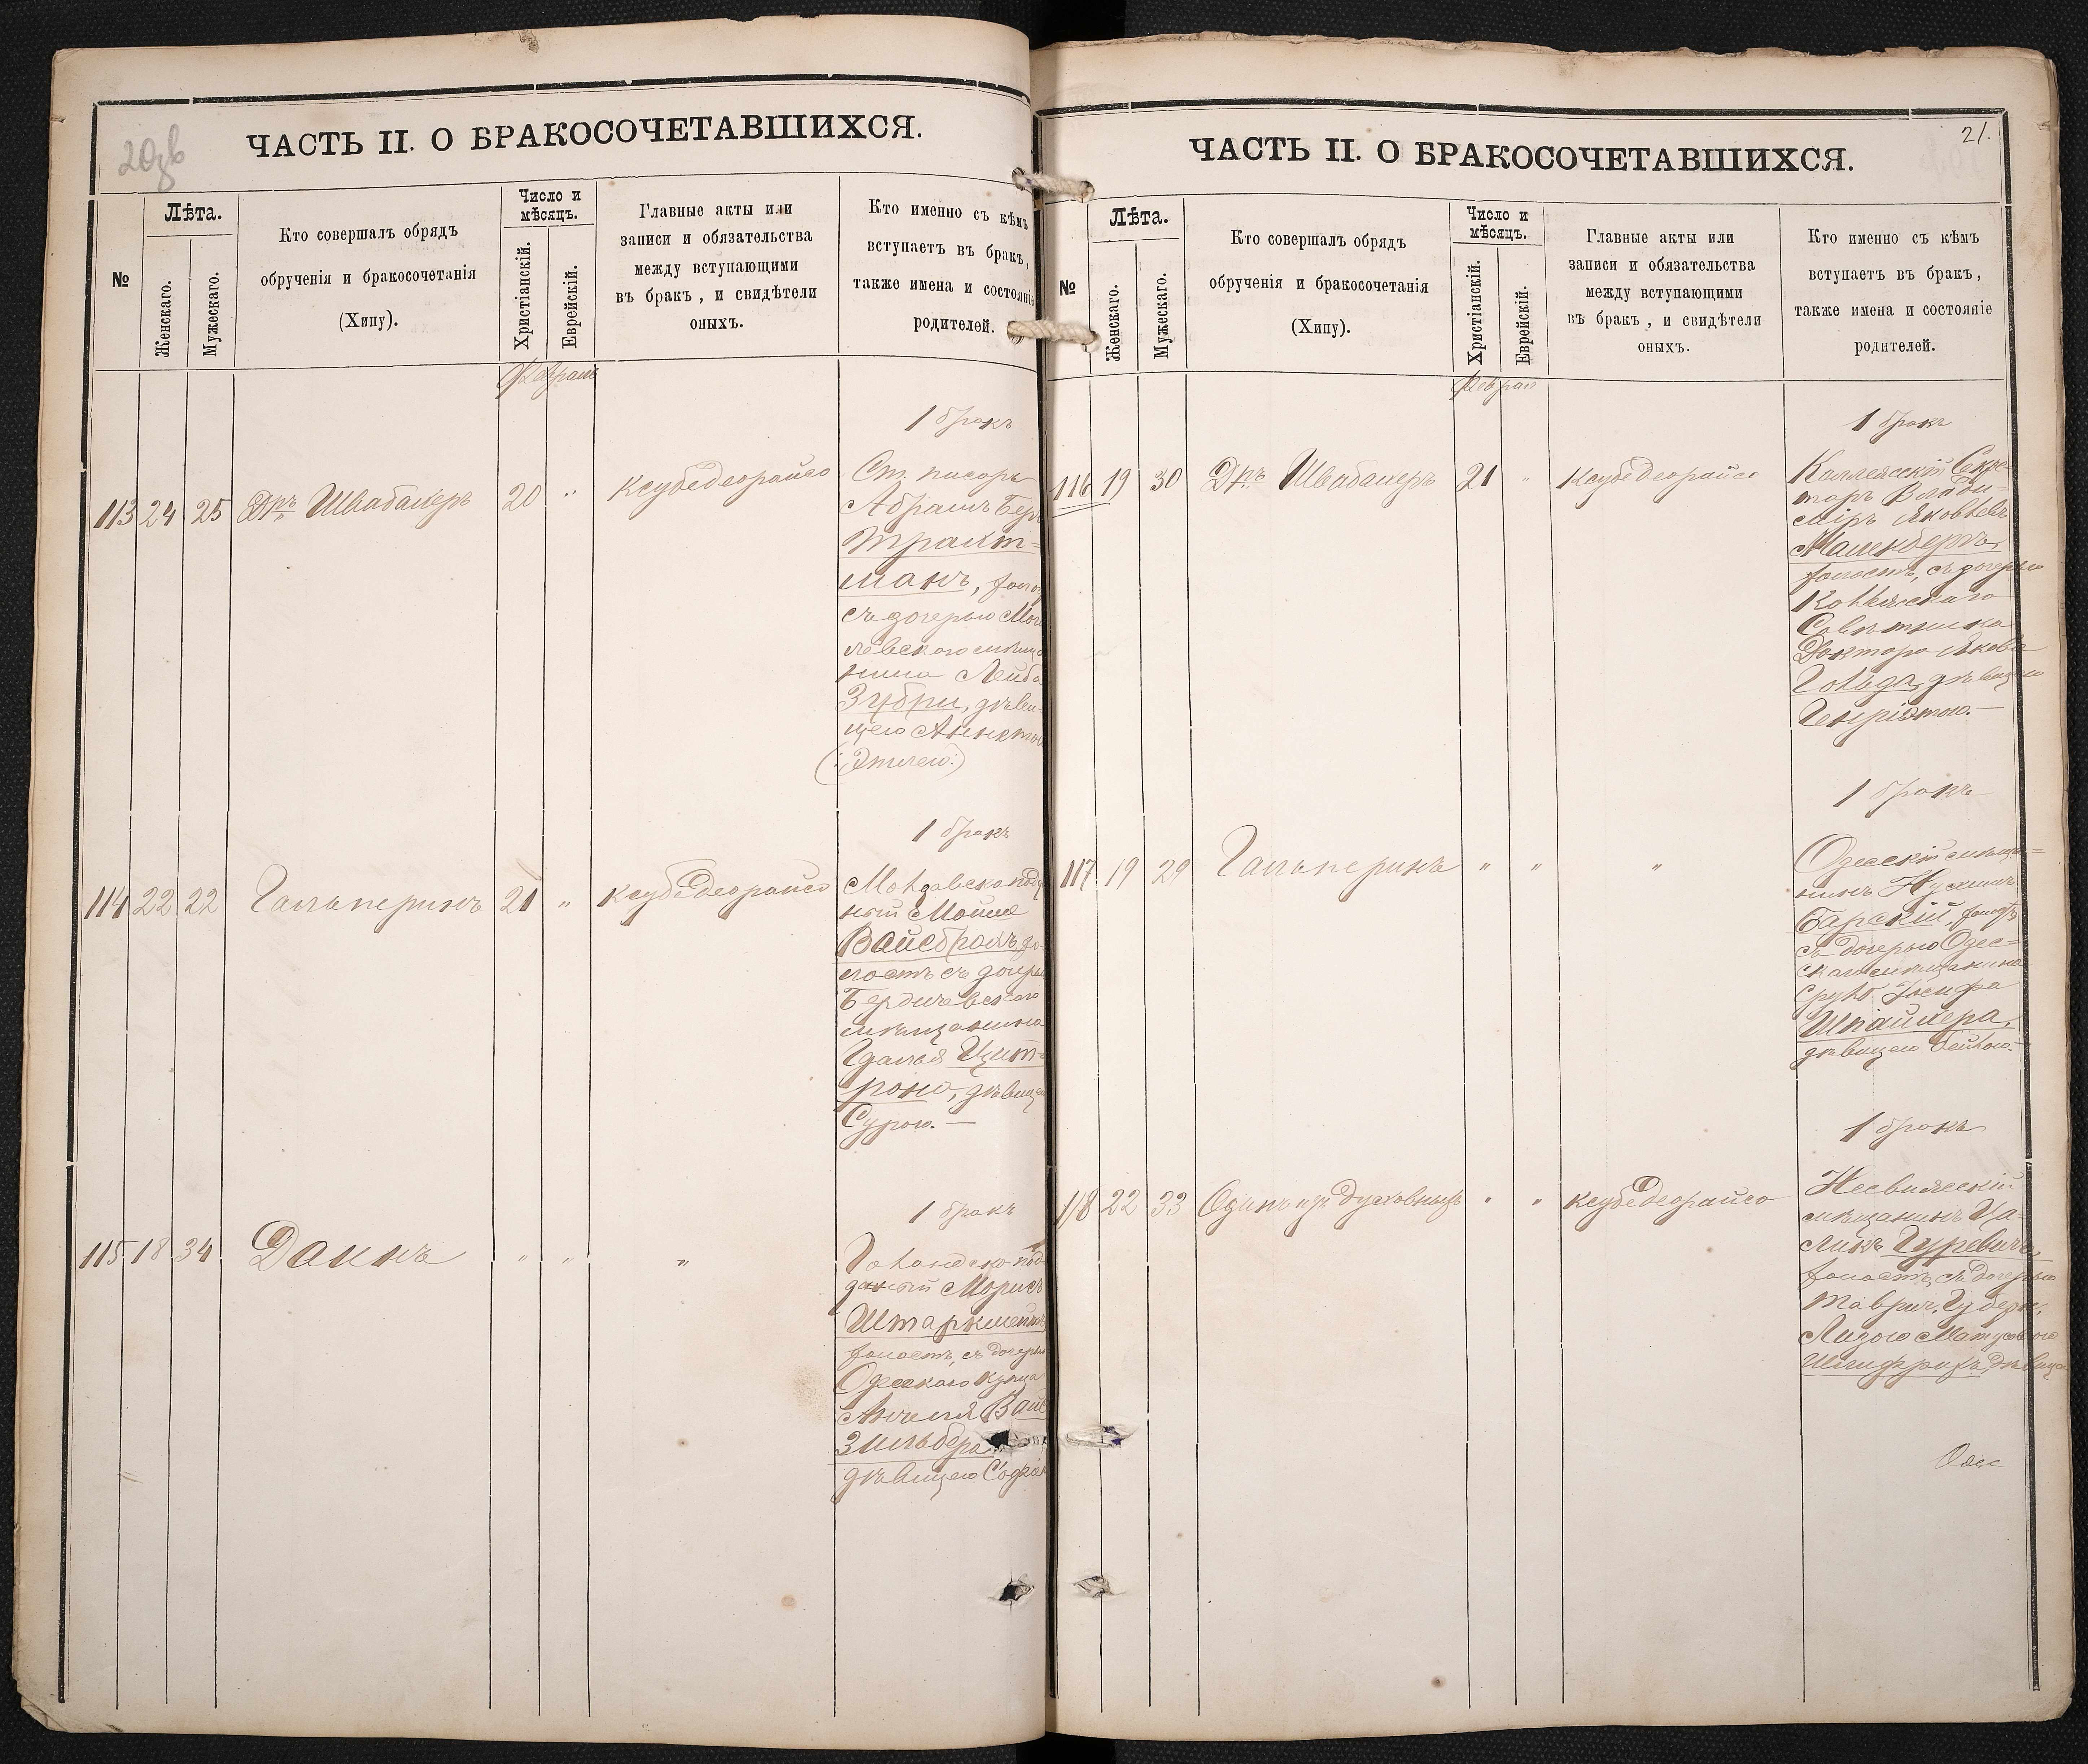 20зв
ЧАСТЬ II. О БРАКОСОЧЕТАВШИХСЯ.
№
Лѣта.
Женскаго.
Мужескаго.
Кто совершалъ обрядъ
обрученія и бракосочетанія
(Хипу).
Число и
мѣсяцъ.
Христіанскій.
Еврейскій.
Главные акты или
записи и обязательства
между вступающими
въ бракъ, и свидѣтели
оныхъ.
Кто именно съ кѣмъ
вступаетъ въ бракъ,
также имена и состояніе
родителей.
Февраль
1 бракъ
113 24 25 Дръ Швабахеръ 20 " Ксубедеорайсо
Ст. писарь
Абрамъ Бер
Тракт=
манъ, холо
съ дочерью Моги
левскаго мѣща
нина Лейба
Зубри, дѣви-
цею Аннетою
(:Этлею:)
1 бракъ
114 22 22 Гальперинъ 21 " Ксубедеорайсо
Молдавско подда
ный Мойше
Вайсбромъ, хо-
лостъ съ дочерью
Бердичевскаго
мѣщанина
Гдалья Цит-
рона, дѣвицею
Сурою. —
1 бракъ
115 18 34 Данкъ " " "
Голандско под
данный Морисъ
Штаркшейнъ
холостъ, съ дочерью
Одесскаго купца
Анчеля Вайс
Зильбера
дѣвицею Софіею
21.
ЧАСТЬ II. О БРАКОСОЧЕТАВШИХСЯ.
№
Лѣта.
Женскаго.
Мужескаго.
Кто совершалъ обрядъ
обрученія и бракосочетанія
(Хипу).
Число и
мѣсяцъ.
Христіанскій.
Еврейскій.
Главные акты или
записи и обязательства
между вступающими
въ бракъ, и свидѣтели
оныхъ.
Кто именно съ кѣмъ
вступаетъ въ бракъ,
также имена и состояніе
родителей.
Феврал
1 бракъ
116 19 30 Дръ Швабахеръ 21 " Ксубедеорайсо
Коллежскій Секре-
таръ Влади-
міръ Яковлевъ
Маленбергъ,
холостъ, съ дочерью
Коллежскаго
Совѣтника
Доктора Якова
Гольда, дѣвицею
Генріэтою. —
1 бракъ
117 19 29 Гальперинъ " " "
Одесскій мѣща=
нинъ Нухимъ
Барскій, холостъ
съ дочерью Одес=
скаго мѣщанина
Сруль Іосифа
Шпайера,
дѣвицею Бейлою. —
1 бракъ
118 22 33 Одинъ изъ Духовныхъ " " Ксубедеорайсо
Несвижескій
мѣщанинъ Ца-
ликъ Гуревичъ,
холостъ, съ дочерью
Таврич. Губерн.
Лизою Матусовою
дѣвицею
Одес